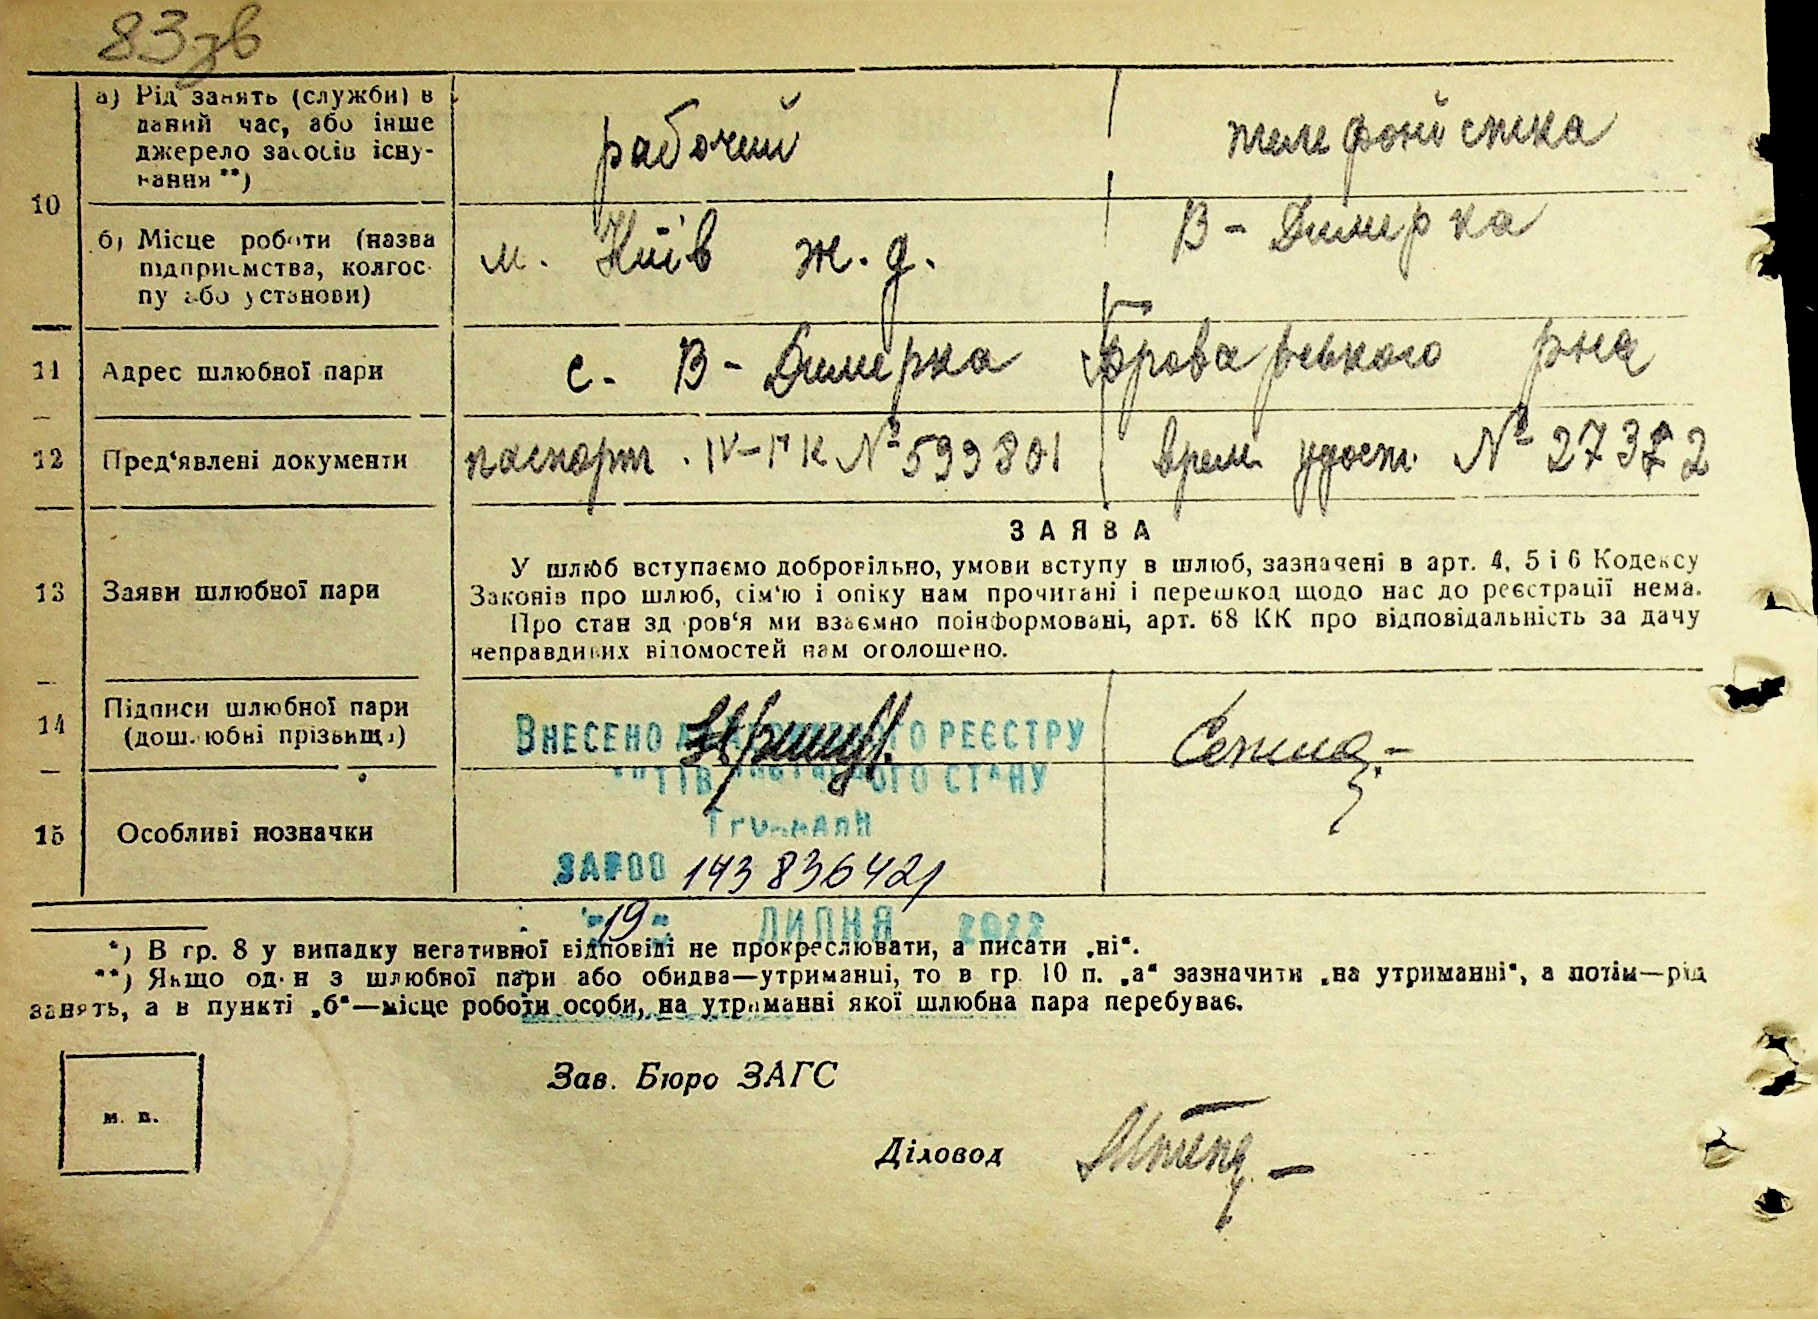 83зв
а) Рід занять (служби) в
даний час, або інше
джерело засобів існу-
вання **)
рабочий
телефоністка
10
б) Місце роботи (назва
підприємства, колгос-
пу або установи)
м. Київ ж. д.
В - Димерка
11
Адрес шлюбної пари
с. В - Димерка Броварського рна
12
Пред‘явлені документи
паспорт . IV-ГК № 599801
врем. удост. № 27372
13
Заяви шлюбної пари
ЗАЯВА
У шлюб вступаємо добровільно, умови вступу в шлюб, зазначені в арт. 4, 5 і 6 Кодексу
Законів про шлюб, сім‘ю і опіку нам прочитані і перешкод щодо нас до реєстрації нема.
Про стан здоров‘я ми взаємно поінформовані, арт. 68 КК про відповідальність за дачу
неправдивих відомостей нам оголошено.
14
Підписи шлюбної пари
(дошлюбні прізвища)
ВНЕСЕНО ДО ДЕРЖАВНОГО РЕЄСТРУ
АКТІВ ЦИВІЛЬНОГО СТАНУ
ГРОМАДЯН
15
Особливі позначки
ЗА №00 143836421
19 ЛИПНЯ 2022
*) В гр. 8 у випадку негативної відповіді не прокреслювати, а писати „ні“.
**) Якщо один з шлюбної пари або обидва—утриманці, то в гр. 10 п. „а“ зазначити „на утриманні“, а потім—рід
занять, а в пункті „б“—місце роботи особи, на утриманні якої шлюбна пара перебуває.
м. п.
Зав. Бюро ЗАГС
Діловод